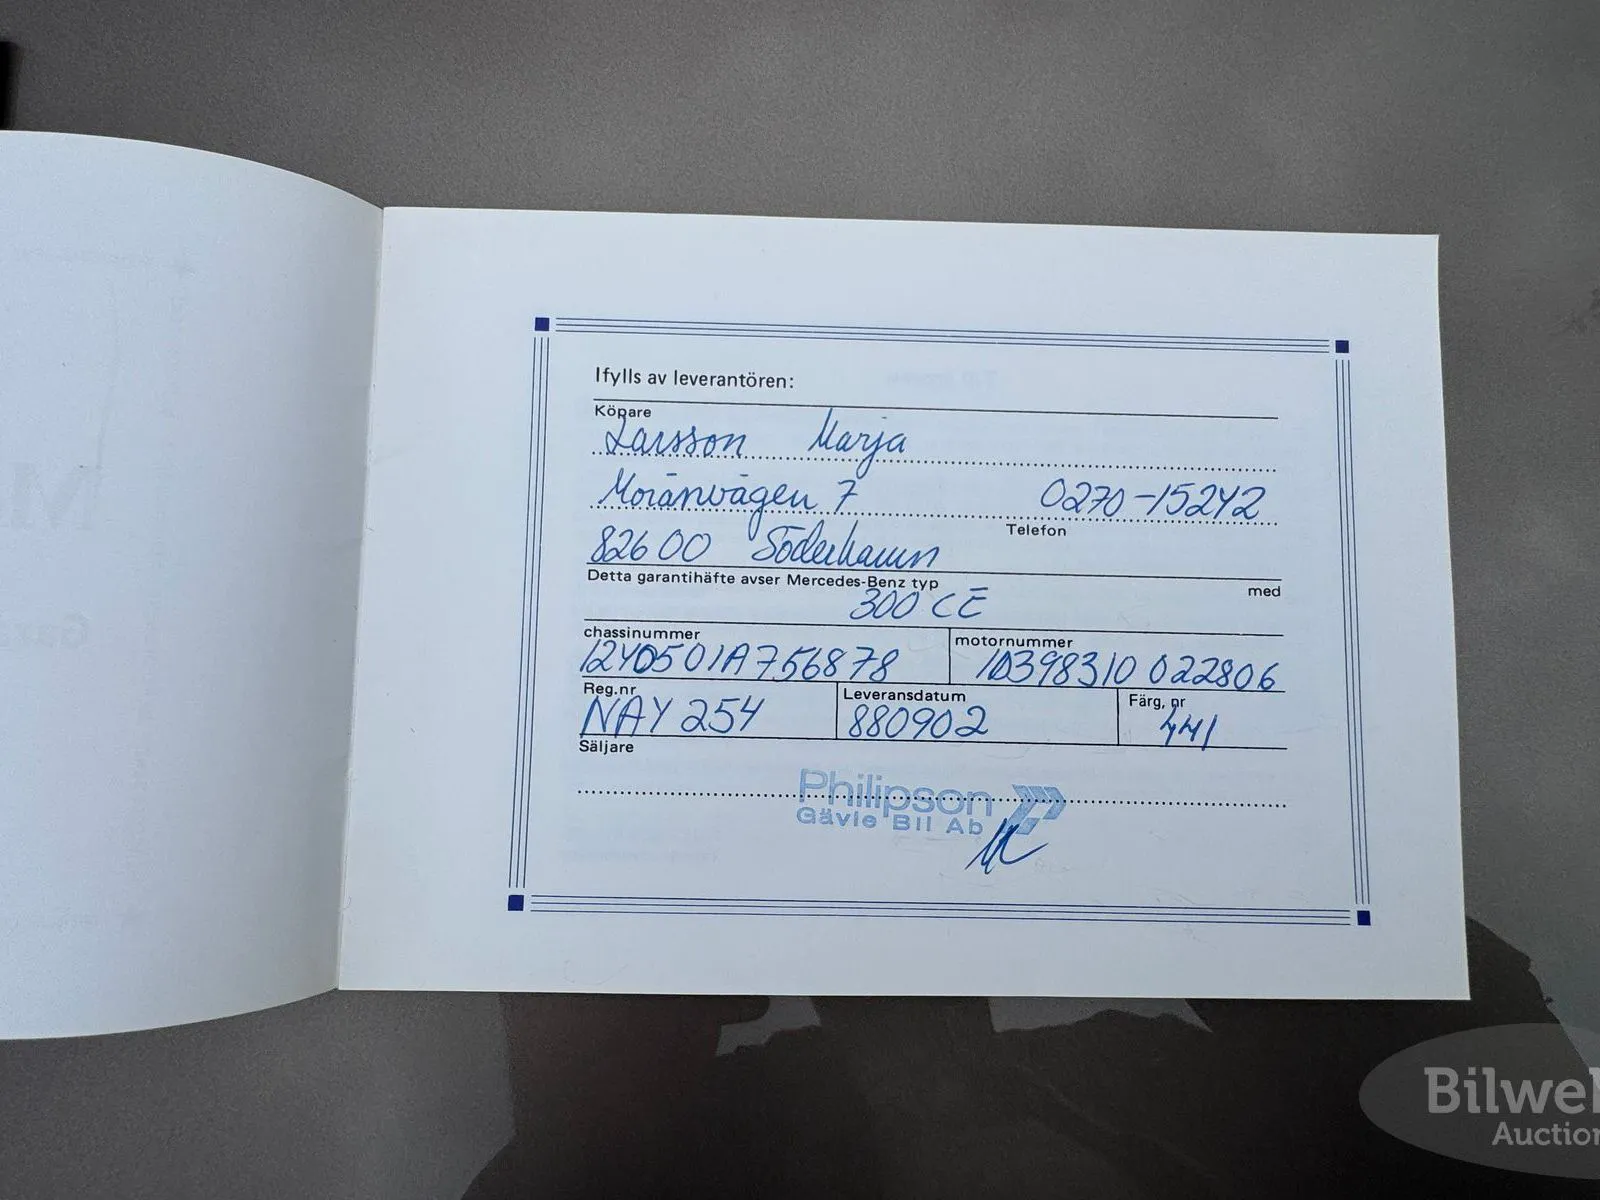 Ifylls av leverantören:
Köpare
Larsson Marja
Moränvägen 7 0270-15242
Telefon
82600 Söderhamn
Detta garantihäfte avser Mercedes-Benz typ med
300 CE
chassinummer motornummer
1240501A756878 10398310 022806
Reg.nr Leveransdatum Färg, nr
NAY 254 880902 441
Säljare
Philipson
Gävle Bil Ab
Bilwe
Auction